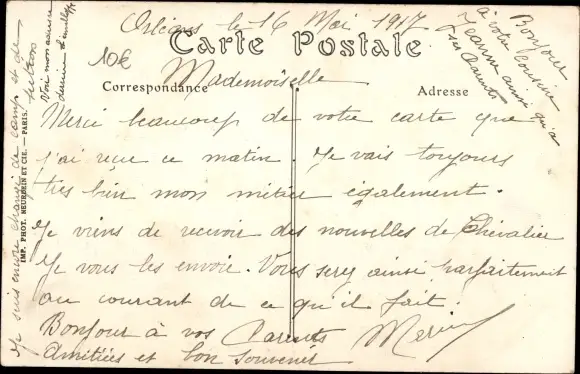 Orléans le 16 Mai 1917
10€
Carte Postale
Correspondance
Adresse
Mademoiselle
Merci beaucoup de votre carte que
j'ai reçue ce matin. Je vais toujours
très bien mon métier également.
Je viens de recevoir des nouvelles de Chevalier
Je vous les envoie. Vous serez ainsi parfaitement
au courant de ce qu'il fait.
Bonjour à vos Parents
Amitiées et bon souvenir
Bonjour
à votre Cousine
Jeanne ainsi qu'à
ses Parents
Je suis encore changé de camp et de
Voir mon adresse
derrière l'enveloppe
IMP. PHOT. NEURDEIN ET CIE. — PARIS.